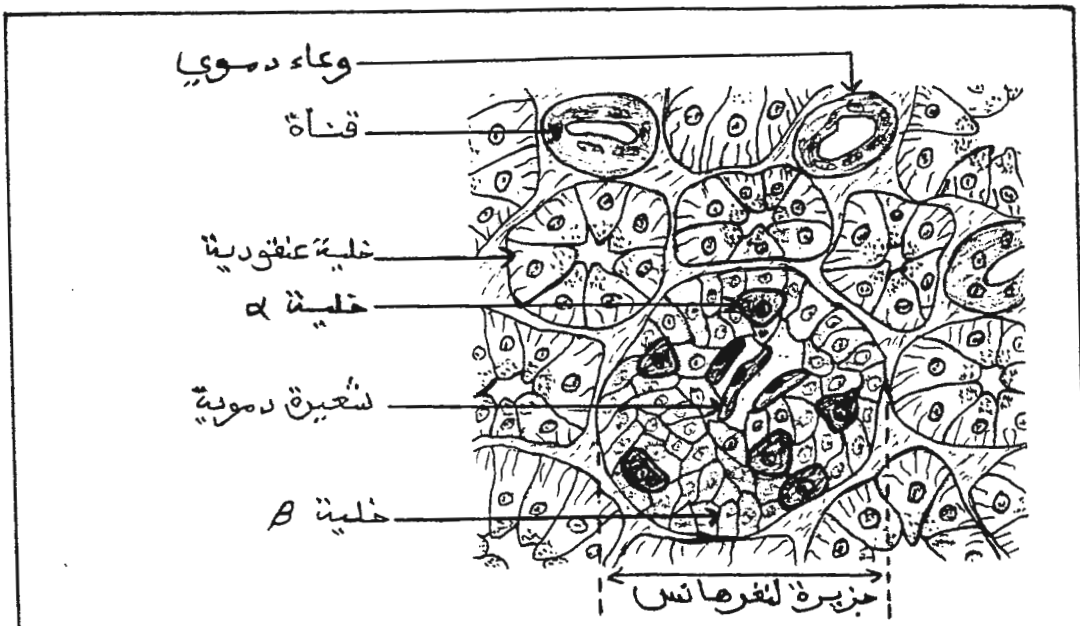 وعاء دموي
قناة
خلية عنقودية
خلية α
شعيرة دموية
خلية β
جزيرة لنغرهانس